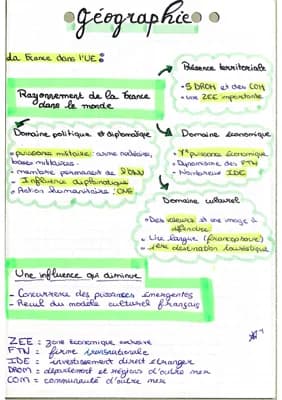 Géographie
La France dans l'UE :
Présence territoriale
- 5 DROM et des COM
- une ZEE importante
Rayonnement de la France
dans le monde
Domaine politique et diplomatique
- puissance militaire : arme nucléaire,
bases militaires
- membre permanent de l'ONU
- Influence diplomatique
- Action humanitaire : ONG
Domaine économique
- puissance économique
- Dynamisme des FTN
- Nombreux IDE
Domaine culturel
- Des valeurs et une image à
défendre
- Une langue (francophonie)
- 1ère destination touristique
Une influence qui diminue
- Concurrence des puissances émergentes
- Recul du modèle culturel français
ZEE = zone économique exclusive
FTN = firme transnationale
IDE = investissement direct étranger
DROM = département et régions d'outre mer
COM = communauté d'outre mer